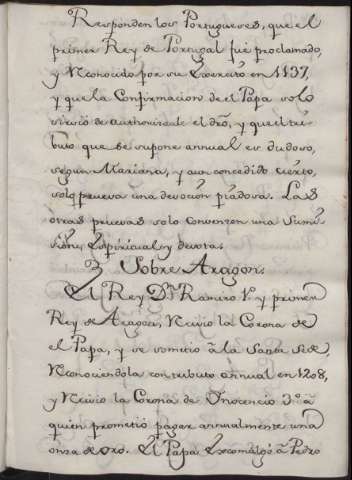 Responden los Portugueses, que el
primer Rey de Portugal fué proclamado,
y Reconocido por su Exercito en 1137,
y que la Confirmacion de el Papa solo
sirvió de authorizarle el dro, y que el tri-
buto que se supone annual es dudoso,
segun Mariana, y aun concedido cierto,
solo prueva una devocion piadosa. Las
otras pruevas solo convenzen una Sumi-
sion, Espiritual y devota.
3 Sobre Aragon.
El Rey Dn Ramiro 1º y primer
Rey de Aragon, Recivio la Corona de
el Papa, y se sometió â la Santa Sede,
Reconociendola con tributo annual en 1208,
y Recivio la Corona de Ynocencio 3º â
quien prometió pagar annualmente una
onza de oro. El Papa Excomulgó â Pedro